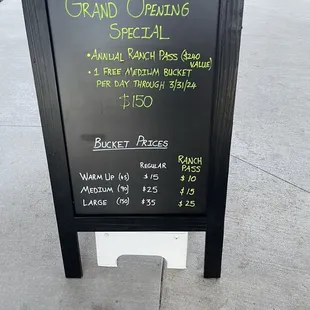 GRAND OPENING
SPECIAL
• ANNUAL RANCH PASS ($240 VALUE)
• 1 FREE MEDIUM BUCKET
PER DAY THROUGH 3/31/24
$150
BUCKET PRICES
REGULAR RANCH PASS
WARM UP (45) $15 $10
MEDIUM (90) $25 $15
LARGE (150) $35 $25